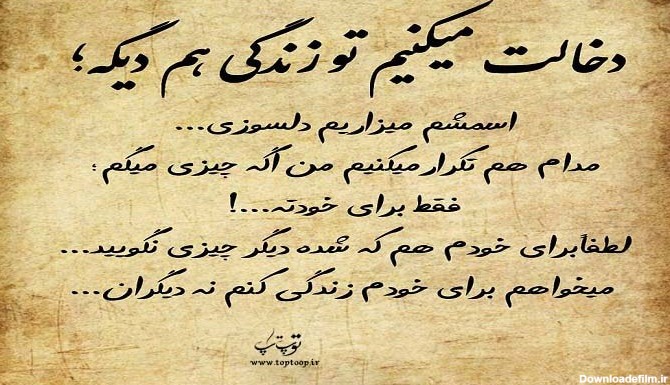 دخالت میکنیم تو زندگی هم دیگه؛
اسمشم میزاریم دلسوزی...
مدام هم تکرار میکنیم من اگه چیزی میگم؛
فقط برای خودته...!
لطفاً برای خودم هم که شده دیگر چیزی نگویید...
میخواهم برای خودم زندگی کنم نه دیگران...
توپ تاپ
www.toptoop.ir
Downloadefilm.ir